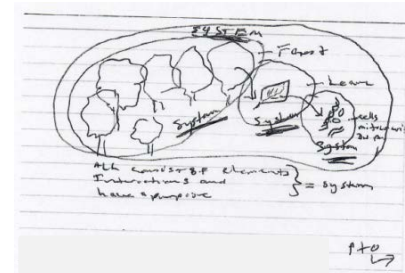 SYSTEM
Forest
Leave
System
System
cells
System
All consist of elements
Interactions and
have a purpose
= system
PTO